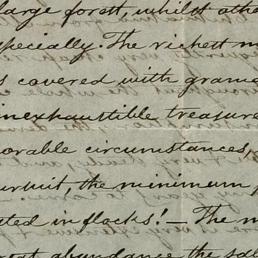 large forest, whilst othe
especially. The richest m
s covered with grama
inexhaustible treasure
orable circumstances,
ursuit, the minimum
ted in flocks! — The m
reat abundance the sal